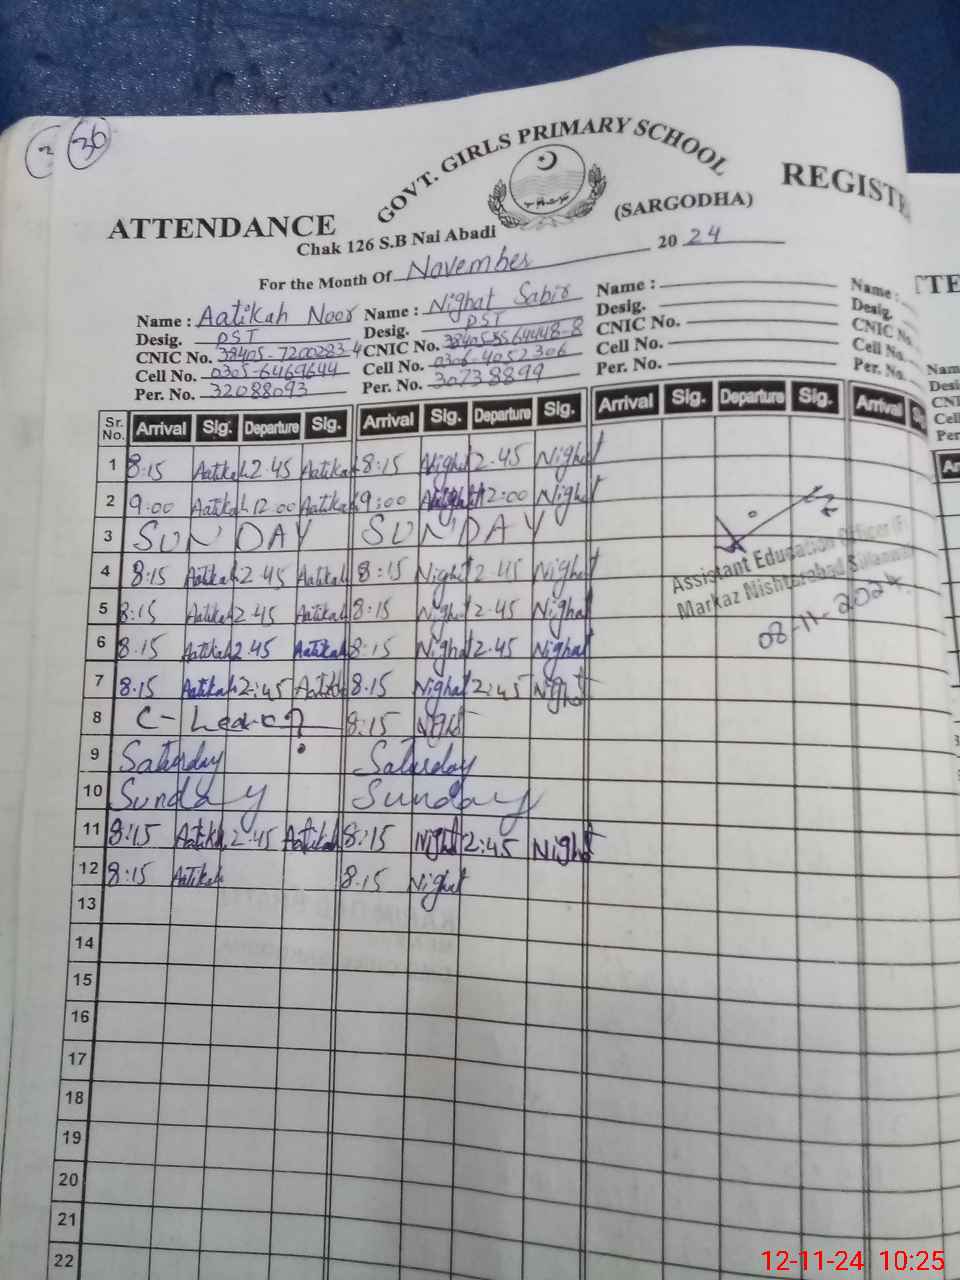 36
GOVT. GIRLS PRIMARY SCHOOL
ATTENDANCE REGISTE
Chak 126 S.B Nai Abadi (SARGODHA)
For the Month Of November 2024
Name : Aatikah Noor Name : Nighat Sabir Name : Name :
Desig. PST Desig. PST Desig. Desig.
CNIC No. 38405-7200283-4 CNIC No. CNIC No. CNIC No.
Cell No. 0305-6469644 Cell No. 0306-4052306 Cell No. Cell No.
Per. No. 32088093 Per. No. 30738899 Per. No. Per. No.
Sr. No. Arrival Sig. Departure Sig. Arrival Sig. Departure Sig. Arrival Sig. Departure Sig. Arrival
1 8:15 Aatikah 2.45 Aatikah 8:15 Nighat 2.45 Nighat
2 9:00 Aatikah 12.00 Aatikah 9:00 Nighat 12:00 Nighat
3 SUNDAY SUNDAY
4 8:15 Aatikah 2.45 Aatikah 8:15 Nighat 2.45 Nighat
5 8:15 Aatikah 2.45 Aatikah 8:15 Nighat 2.45 Nighat
6 8.15 Aatikah 2.45 Aatikah 8:15 Nighat 2.45 Nighat
7 8.15 Aatikah 2:45 Aatikah 8.15 Nighat 2:45 Nighat
8 C-Leave 8:15 Nighat
9 Saturday Saturday
10 Sunday Sunday
11 8:15 Aatikah 2.45 Aatikah 8:15 Nighat 2:45 Nighat
12 8:15 Aatikah 8.15 Nighat
13
14
15
16
17
18
19
20
21
22
Assistant Education Officer (F)
Markaz Nishterabad Sillanwali
08-11-2024
12-11-24 10:25